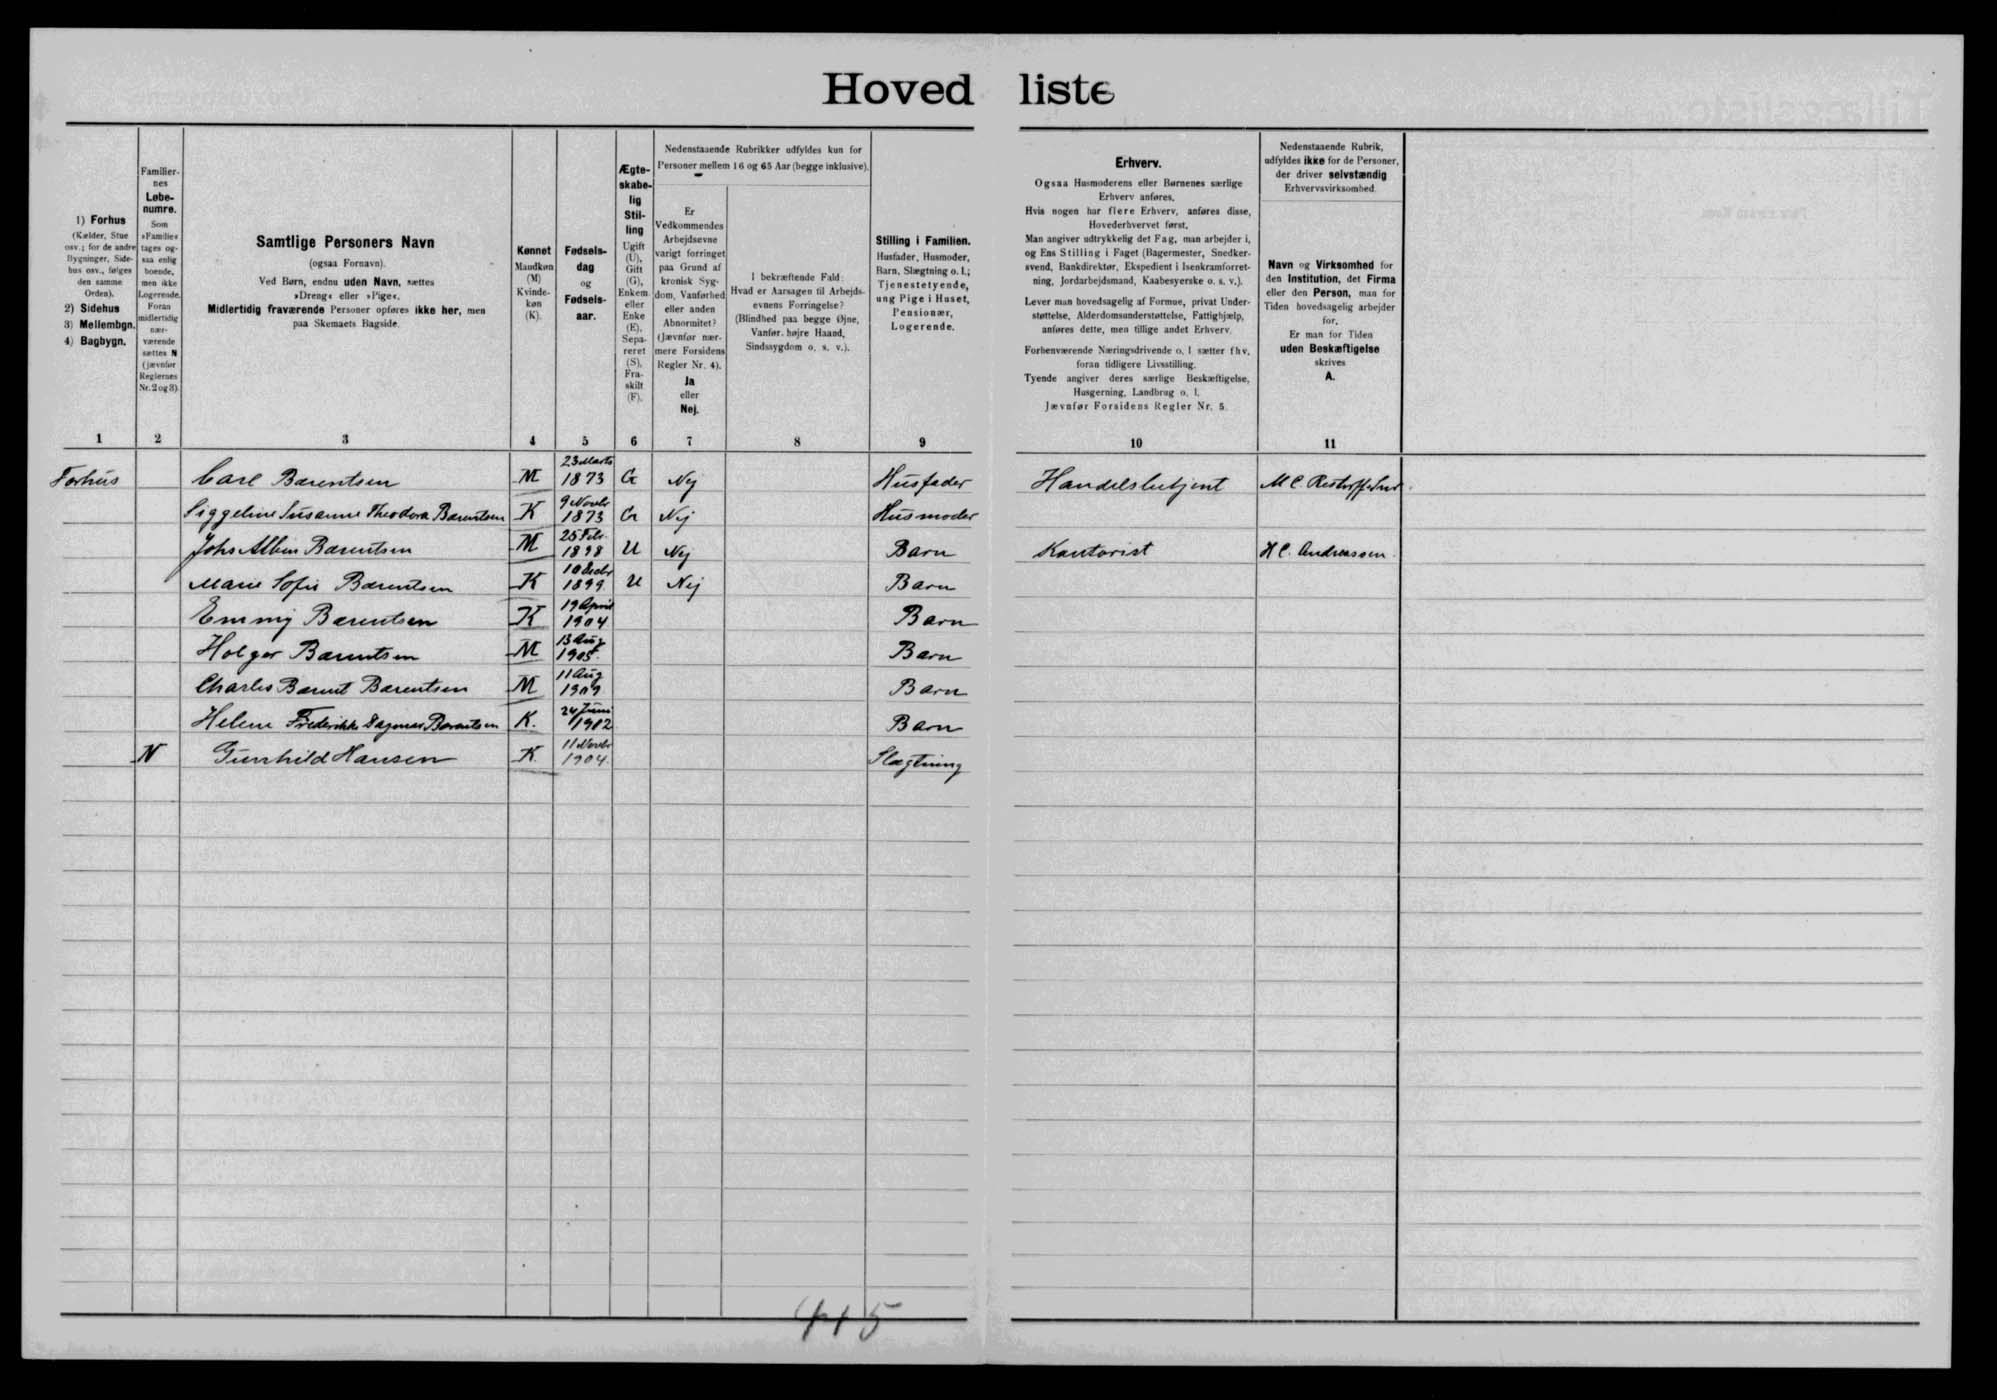 Hoved liste
1) Forhus
(Kælder, Stue
osv.; for de andre
Bygninger, Side-
hus osv., følges
den samme
Orden).
2) Sidehus
3) Mellembgn.
4) Bagbygn.
Familier-
nes
Løbe-
numre.
Som
»Familie«
tages og-
saa enlig
boende,
men ikke
Logerende.
Foran
midlertidig
nær-
værende
sættes N
(jævnfør
Reglernes
Nr. 2 og 3).
Samtlige Personers Navn
(ogsaa Fornavn).
Ved Børn, endnu uden Navn, sættes
»Dreng« eller »Pige«.
Midlertidig fraværende Personer opføres ikke her, men
paa Skemaets Bagside.
Kønnet
Mandkøn
(M)
Kvinde-
køn
(K).
Fødsels-
dag
og
Fødsels-
aar.
Ægte-
skabe-
lig
Stil-
ling
Ugift
(U),
Gift
(G),
Enkem.
eller
Enke
(E),
Sepa-
reret
(S),
Fra-
skilt
(F).
Nedenstaaende Rubrikker udfyldes kun for
Personer mellem 16 og 65 Aar (begge inklusive).
Er
Vedkommendes
Arbejdsevne
varigt forringet
paa Grund af
kronisk Syg-
dom, Vanførhed
eller anden
Abnormitet?
(Jævnfør nær-
mere Forsidens
Regler Nr. 4).
Ja
eller
Nej.
I bekræftende Fald:
Hvad er Aarsagen til Arbejds-
evnens Forringelse?
(Blindhed paa begge Øjne,
Vanfør. højre Haand,
Sindssygdom o. s. v.).
Stilling i Familien.
Husfader, Husmoder,
Barn, Slægtning o. l.;
Tjenestetyende,
ung Pige i Huset,
Pensionær,
Logerende.
Erhverv.
Ogsaa Husmoderens eller Børnenes særlige
Erhverv anføres.
Hvis nogen har flere Erhverv, anføres disse,
Hovederhvervet først.
Man angiver udtrykkelig det Fag, man arbejder i,
og Ens Stilling i Faget (Bagermester, Snedker-
svend, Bankdirektør, Ekspedient i Isenkramforret-
ning, Jordarbejdsmand, Kaabesyerske o. s. v.).
Lever man hovedsagelig af Formue, privat Under-
støttelse, Alderdomsunderstøttelse, Fattighjælp,
anføres dette, men tillige andet Erhverv.
Forhenværende Næringsdrivende o. l. sætter fhv.
foran tidligere Livsstilling.
Tyende angiver deres særlige Beskæftigelse,
Husgerning, Landbrug o. l.
Jævnfør Forsidens Regler Nr. 5.
Nedenstaaende Rubrik,
udfyldes ikke for de Personer,
der driver selvstændig
Erhvervsvirksomhed.
Navn og Virksomhed for
den Institution, det Firma
eller den Person, man for
Tiden hovedsagelig arbejder
for.
Er man for Tiden
uden Beskæftigelse
skrives
A.
1 2 3 4 5 6 7 8 9 10 11
Forhus Carl Barentsen M 23 Marts 1873 G Nej Husfader Handelsbetjent M C. Restorff & Sønr
Siggeline Susanne Theodora Barentsen K 9 Novbr 1873 G Nej Husmoder
Johs Albin Barentsen M 25 Febr. 1898 U Nej Barn Kontorist H C. Andreassen.
Marie Sofie Barentsen K 10 Decbr 1899 U Nej Barn
Emmy Barentsen K 19 April 1904 Barn
Holger Barentsen M 13 Aug 1905. Barn
Charles Barent Barentsen M 11 Aug 1909 Barn
Helene Frederikke Dagmar Barentsen K. 24 Juni 1912 Barn
N Gunhild Hansen K. 11 Novbr 1904. Slægtning
4+5